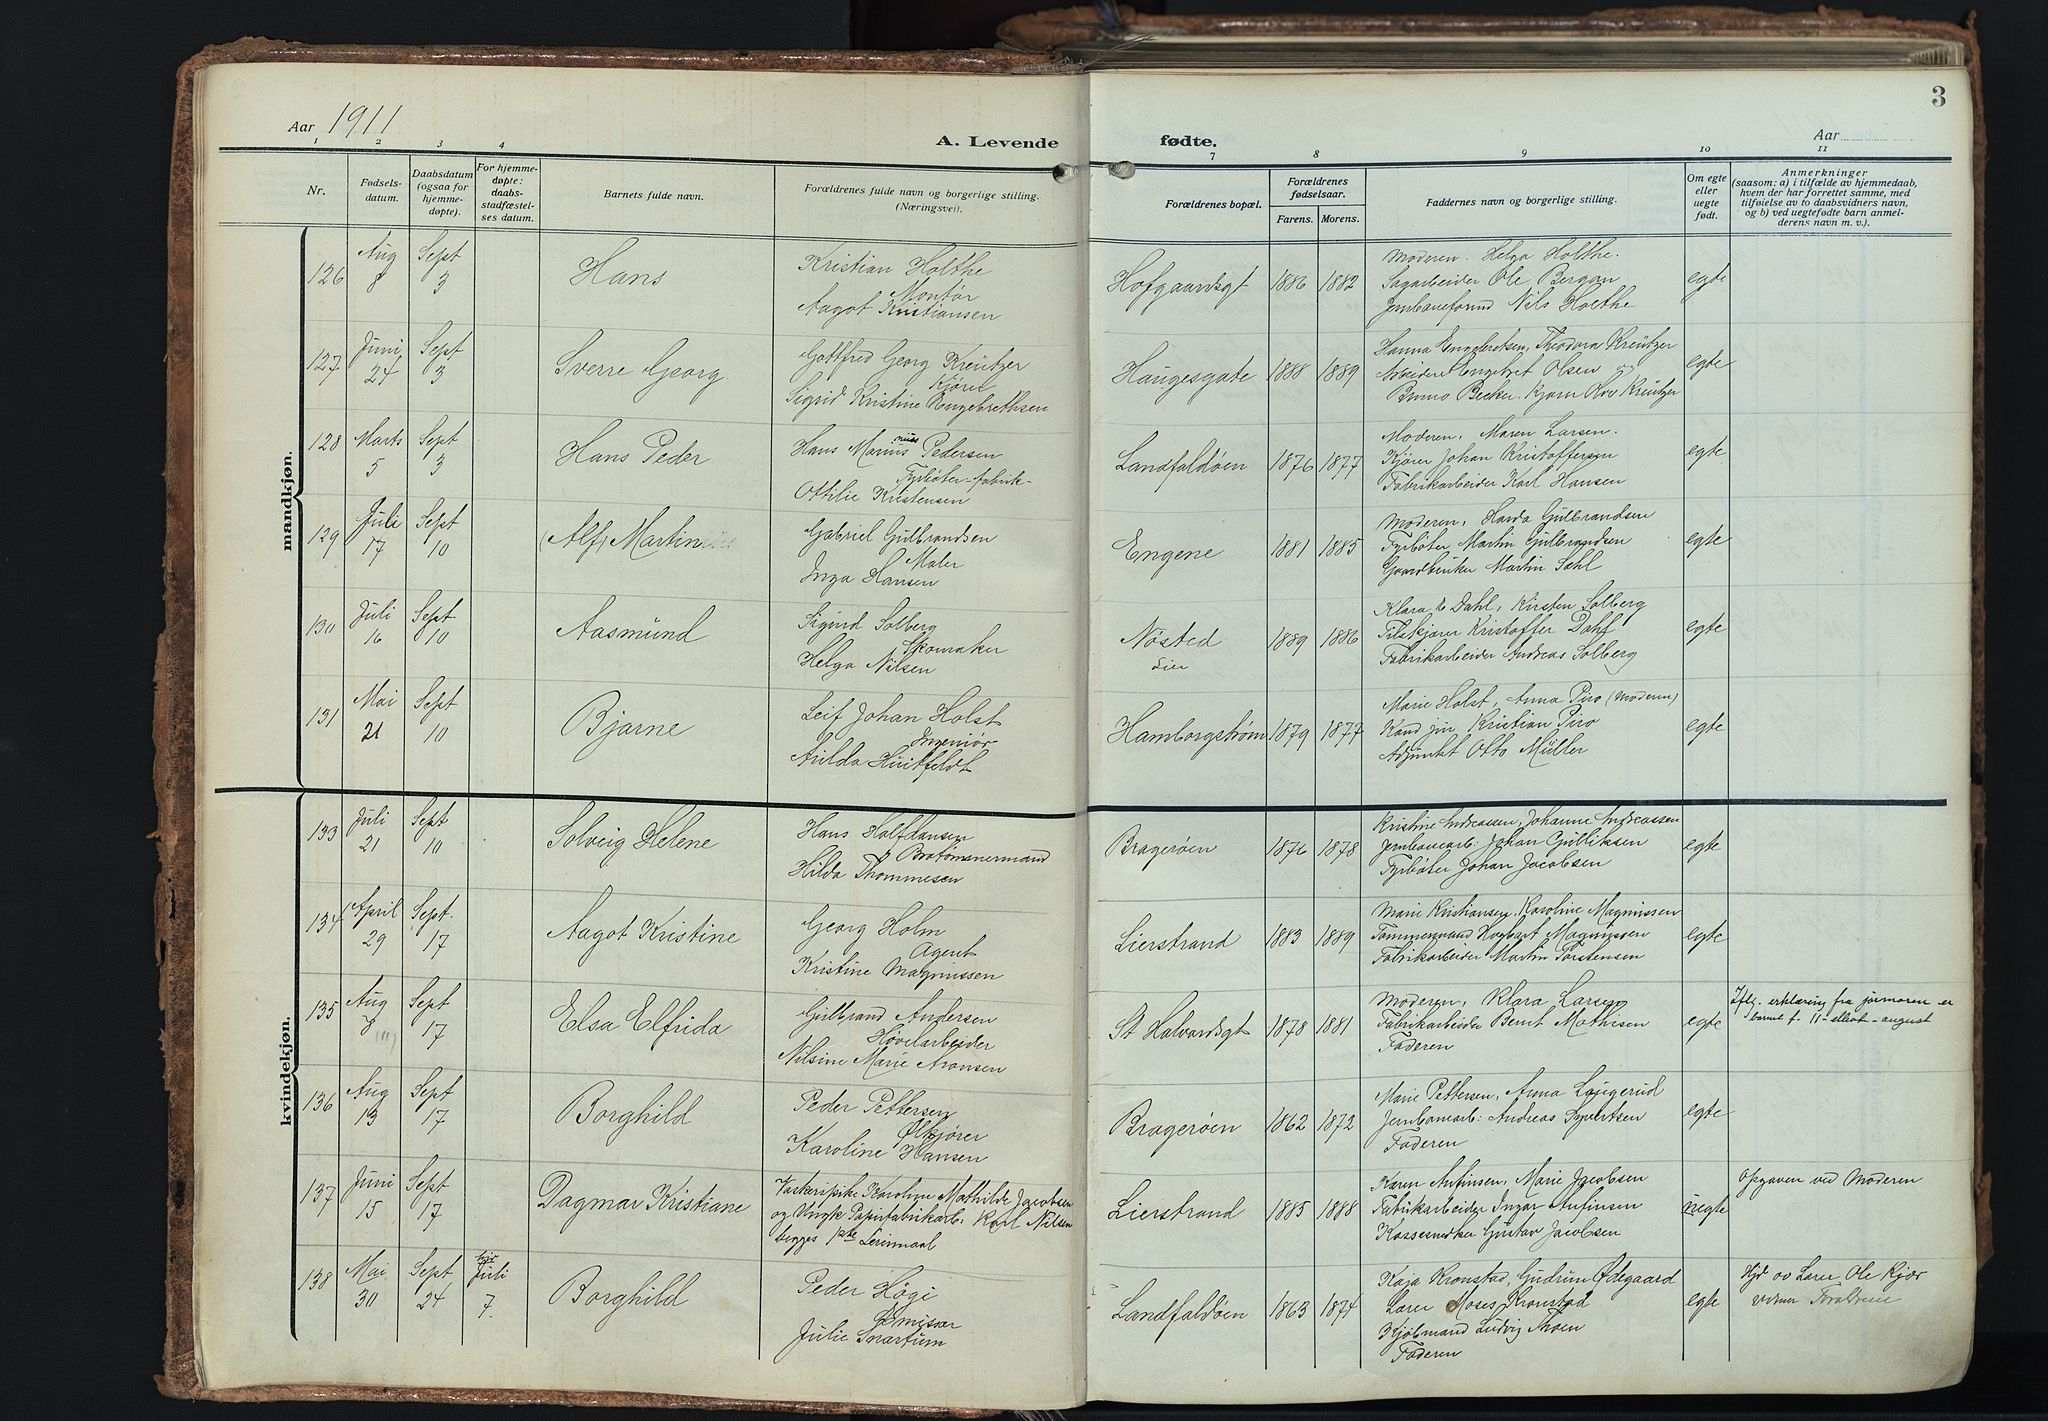 3
Aar 1911
A. Levende fødte.
Aar
1 2 3 4 7 8 9 10 11
Nr.
Fødsels-
datum.
Daabsdatum
(ogsaa for
hjemme-
døpte).
For hjemme-
døpte:
daabs-
stadfæstel-
ses datum.
Barnets fulde navn.
Forældrenes fulde navn og borgerlige stilling.
(Næringsvei).
Forældrenes bopæl.
Forældrenes
fødselsaar.
Farens. Morens.
Faddernes navn og borgerlige stilling.
Om egte
eller
uegte
født.
Anmerkninger
(saasom: a) i tilfælde av hjemmedaab,
hvem der har forrettet samme, med
tilføielse av to daabsvidners navn,
og b) ved uegtefødte barn anmel-
derens navn m. v.).
mandkjøn.
126 Aug 8 Sept 3 Hans
Kristian Holthe
Montør
Aagot Kristiansen
Hofgaardsgt 1886 1882
Moderen. Helga Holthe.
Sagarbeider Ole Bergan
Nils Holthe
egte
127 Juni 24 Sept 3 Sverre Georg
Gottfred Georg Kreutzer
Kjører
Sigrid Kristine Engebrethsen
Haugesgate 1888 1889
Hanna Engebretsen, Theodora Kreutzer
Arbeider Engebret Olsen og
Bruno Becker. Kreutzer
egte
128 Marts 5 Sept 3 Hans Peder
Hans Marius Pedersen
Fyrbøter-fabrik-
Ottilie Kristensen
Landfaldøen 1876 1877
Moderen. Maren Larsen.
Kjører Johan Kristoffersen
Fabrikarbeider Karl Hansen
egte
129 Juli 17 Sept 10 (Alf) Martin
Gabriel Gulbrandsen
Maler
Inga Hansen
Engene 1881 1885
Moderen, Gulbrandsen
Fyrbøter Martin Gulbrandsen
Martin Sahl
egte
130 Juli 16 Sept 10 Aasmund
Sigurd Solberg
Skomaker
Helga Nilsen
Nøsted
Lier
1889 1886
Klara Dahl, Kirsten Solberg
Kristoffer Dahl
Fabrikarbeider Andreas Solberg
egte
131 Mai 21 Sept 10 Bjarne
Leif Johan Holst
Ingeniør
Huitfeldt
Hamborgstrøm 1879 1877
Marie Holst, Anna Piro (Moderen)
Kand jur Kristian Piro
Adjunkt Otto Müller
egte
kvindekjøn.
133 Juli 21 Sept 10 Solveig Helene
Hans Halfdansen
Brotømmermand
Hilda Thommesen
Bragerøen 1876 1878
Kristine Andreassen, Johanne Andreassen
Jernbanearb: Johan Gulliksen
Fyrbøter Johan Jacobsen
egte
134 April 29 Sept. 17 Aagot Kristine
Georg Holm
Agent
Kristine Magnussen
Lierstrand 1883 1889
Marie Kristiansen, Karoline Magnussen
Tømmermand Hagbart Magnussen
Fabrikarbeider Martin Torstensen
egte
135 Aug 8 Sept 17 Elsa Elfrida
Gulbrand Andersen
Høvelarbeider
Nilsine Marie Aronsen
St Halvardsgt 1878 1881
Moderen, Klara Larsen
Fabrikarbeider Bernt Mathisen
Faderen
egte
Iflg. erklæring fra jormoren er
barnet f. 11-ellevt-august
136 Aug 13 Sept 17 Borghild
Peder Pettersen
Ølkjører
Karoline Hansen
Bragerøen 1862 1872
Marie Pettersen, Anna Laugerud
Jernbanearb: Andreas Syvertsen
Faderen
egte
137 Juni 15 Sept 17 Dagmar Kristiane
Vaskeripike Karoline Mathilde Jacobsen
og Ungk Papirfabrikarb. Karl Nilsen
begges 1ste Leiermaal
Lierstrand 1885 1888
Karen Anfinsen, Marie Jacobsen
Fabrikarbeider Ingar Anfinsen
Kassesnedker Gustav Jacobsen
uegte
Opgaven ved Moderen
138 Mai 30 Sept 24 Juli 7. Borghild
Peder Høgi
Emissær
Julie Snartum
Landfaldøen 1863 1874
Kaja Kronstad, Gudrun Ødegaard
Lærer Moses Kronstad
Kjøbmand Ludvig Thoen
Faderen
egte
Hjd av Lærer Ole Kjær
vidner Forældrene